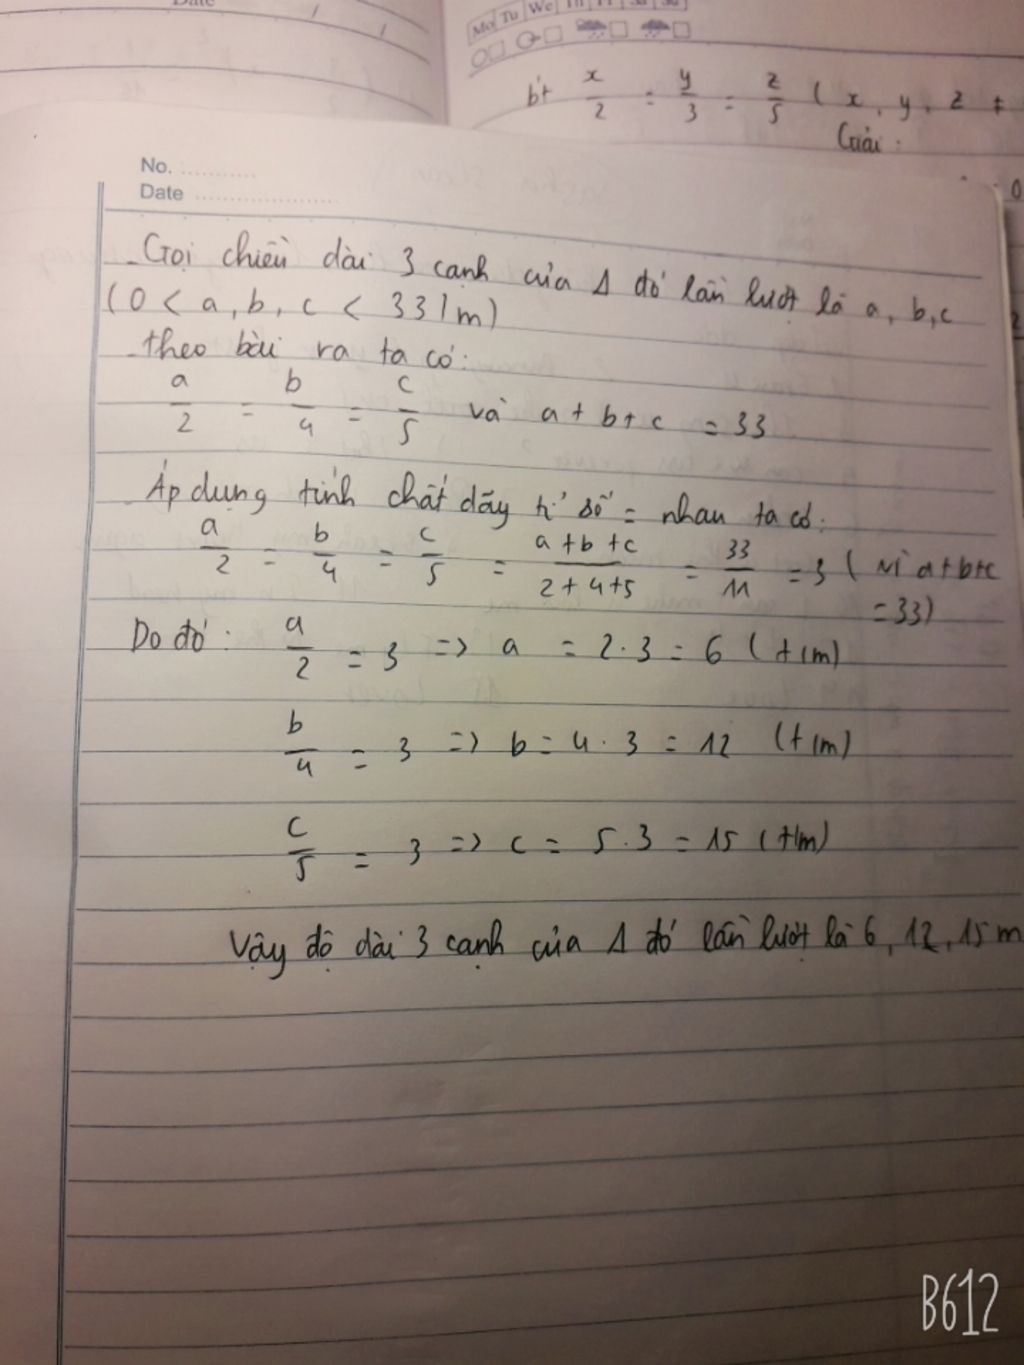 Date
Mo Tu We Th Fr Sa Su
bt x/2 = y/3 = z/5 ( x, y, z ≠
Giải:
No. ...........
Date ....................
- Gọi chiều dài 3 cạnh của Δ đó lần lượt là a, b, c
( 0 < a, b, c < 33 / m)
- theo bài ra ta có:
a/2 = b/4 = c/5 và a + b + c = 33
- Áp dụng tính chất dãy tỉ số = nhau ta có:
a/2 = b/4 = c/5 = a+b+c/2+4+5 = 33/11 = 3 ( vì a+b+c
= 33)
Do đó: a/2 = 3 => a = 2.3 = 6 (t/m)
b/4 = 3 => b = 4.3 = 12 (t/m)
c/5 = 3 => c = 5.3 = 15 (t/m)
Vậy độ dài 3 cạnh của Δ đó lần lượt là 6, 12, 15 m
B612